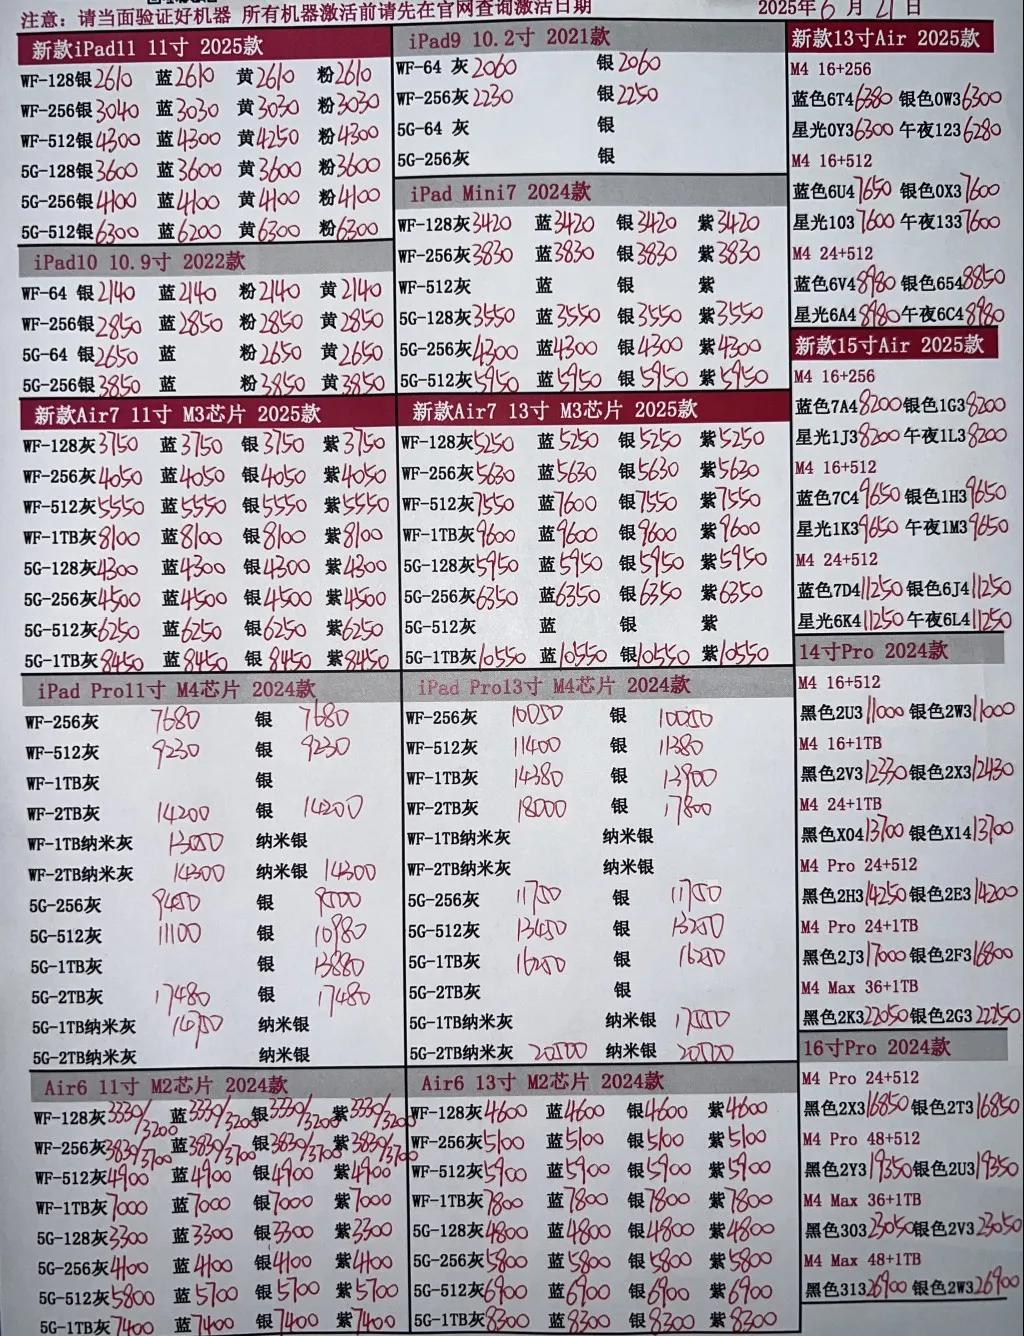 注意：请当面验证好机器 所有机器激活前请先在官网查询激活日期
2025年6月21日
新款iPad11 11寸 2025款
WF-128银2610 蓝2610 黄2610 粉2610
WF-256银3040 蓝3030 黄3030 粉3030
WF-512银4300 蓝4300 黄4250 粉4300
5G-128银3600 蓝3600 黄3600 粉3600
5G-256银4100 蓝4100 黄4100 粉4100
5G-512银6300 蓝6200 黄6300 粉6300
iPad10 10.9寸 2022款
WF-64 银2140 蓝2140 粉2140 黄2140
WF-256银2850 蓝2850 粉2850 黄2850
5G-64 银2650 蓝 粉2650 黄2650
5G-256银3850 蓝 粉3850 黄3850
新款Air7 11寸 M3芯片 2025款
WF-128灰3750 蓝3750 银3750 紫3750
WF-256灰4050 蓝4050 银4050 紫4050
WF-512灰5550 蓝5550 银5550 紫5550
WF-1TB灰8100 蓝8100 银8100 紫8100
5G-128灰4300 蓝4300 银4300 紫4300
5G-256灰4500 蓝4500 银4500 紫4500
5G-512灰6250 蓝6250 银6250 紫6250
5G-1TB灰8450 蓝8450 银8450 紫8450
iPad Pro11寸 M4芯片 2024款
WF-256灰 7680 银 7680
WF-512灰 9230 银 9230
WF-1TB灰 银
WF-2TB灰 14200 银 14200
WF-1TB纳米灰 13000 纳米银
WF-2TB纳米灰 14300 纳米银 14300
5G-256灰 9450 银 9500
5G-512灰 11100 银 10980
5G-1TB灰 银 13880
5G-2TB灰 17480 银 17480
5G-1TB纳米灰 纳米银
5G-2TB纳米灰 纳米银
Air6 11寸 M2芯片 2024款
WF-128灰3330/3200 蓝3330/3200 银3330/3200 紫3330/3200
WF-256灰3830/3700 蓝3830/3700 银3830/3700 紫3830/3700
WF-512灰4900 蓝4900 银4900 紫4900
WF-1TB灰7000 蓝7000 银7000 紫7000
5G-128灰3300 蓝3300 银3300 紫3300
5G-256灰4100 蓝4100 银4100 紫4100
5G-512灰5800 蓝5700 银5700 紫5700
5G-1TB灰7400 蓝7400 银7400 紫7400
iPad9 10.2寸 2021款
WF-64 灰2060 银2060
WF-256灰2230 银2250
5G-64 灰 银
5G-256灰 银
iPad Mini7 2024款
WF-128灰3420 蓝3420 银3420 紫3420
WF-256灰3830 蓝3830 银3830 紫3830
WF-512灰 蓝 银 紫
5G-128灰3550 蓝3550 银3550 紫3550
5G-256灰4300 蓝4300 银4300 紫4300
5G-512灰5950 蓝5950 银5950 紫5950
新款Air7 13寸 M3芯片 2025款
WF-128灰5250 蓝5250 银5250 紫5250
WF-256灰5630 蓝5630 银5630 紫5630
WF-512灰7550 蓝7600 银7550 紫7550
WF-1TB灰9600 蓝9600 银9600 紫9600
5G-128灰5950 蓝5950 银5950 紫5950
5G-256灰6350 蓝6350 银6350 紫6350
5G-512灰 蓝 银 紫
5G-1TB灰10550 蓝10550 银10550 紫10550
iPad Pro13寸 M4芯片 2024款
WF-256灰 10050 银 10050
WF-512灰 11400 银 11380
WF-1TB灰 14380 银 13900
WF-2TB灰 18000 银 17800
WF-1TB纳米灰 纳米银
WF-2TB纳米灰 纳米银
5G-256灰 11750 银 11750
5G-512灰 13450 银 13250
5G-1TB灰 16250 银 16250
5G-2TB灰 银
5G-1TB纳米灰 纳米银 17550
5G-2TB纳米灰 20500 纳米银 20500
Air6 13寸 M2芯片 2024款
WF-128灰4600 蓝4600 银4600 紫4600
WF-256灰5100 蓝5100 银5100 紫5100
WF-512灰5900 蓝5900 银5900 紫5900
WF-1TB灰7800 蓝7800 银7800 紫7800
5G-128灰4800 蓝4800 银4800 紫4800
5G-256灰5800 蓝5800 银5800 紫5800
5G-512灰6900 蓝6900 银6900 紫6900
5G-1TB灰8300 蓝8300 银8300 紫8300
新款13寸Air 2025款
M4 16+256
蓝色6T46380 银色0W36300
星光0Y36300 午夜1236280
M4 16+512
蓝色6U47650 银色0X37600
星光1037600 午夜1337600
M4 24+512
蓝色6V48980 银色6548850
星光6A48980 午夜6C48980
新款15寸Air 2025款
M4 16+256
蓝色7A48200 银色1G38200
星光1J38200 午夜1L38200
M4 16+512
蓝色7C49650 银色1H39650
星光1K39650 午夜1M39650
M4 24+512
蓝色7D411250 银色6J411250
星光6K411250 午夜6L411250
14寸Pro 2024款
M4 16+512
黑色2U311000 银色2W311000
M4 16+1TB
黑色2V312330 银色2X312430
M4 24+1TB
黑色X0413700 银色X1413700
M4 Pro 24+512
黑色2H314250 银色2E314200
M4 Pro 24+1TB
黑色2J317000 银色2F316800
M4 Max 36+1TB
黑色2K322050 银色2G322250
16寸Pro 2024款
M4 Pro 24+512
黑色2X316850 银色2T316850
M4 Pro 48+512
黑色2Y319350 银色2U319350
M4 Max 36+1TB
黑色30323050 银色2V323050
M4 Max 48+1TB
黑色31326900 银色2W326900